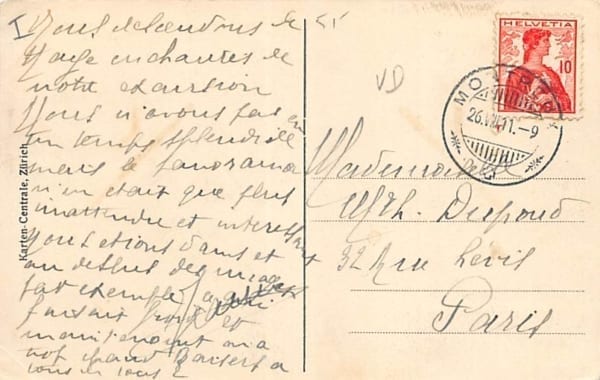 I Nous descendons de
Naye enchantés de
notre excursion
Nous n'avons pas eu
un temps splendide
mais le panorama
n'en était que plus
inattendu et intéressant
Nous étions dans et
au dessus des nuages
fait exemple à
faisait froid et
maintenant on a
trop chaud Baisers à
tous
VD
HELVETIA
10
MONTREUX
26.VII.11.-9
Mademoiselle
Mth. Dupond
32 Rue Lévis
Paris
Karten-Centrale, Zürich